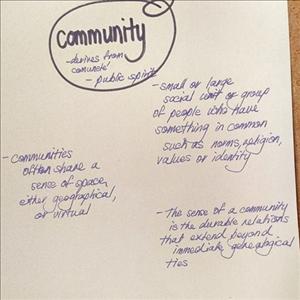 community
- derives from
comuneté
- public spirit
- small or large
social unit or group
of people who have
something in common
such as norms, religion,
values or identity
- communities
often share a
sense of space,
either geographical,
or virtual
- The sense of a community
is the durable relations
that extend beyond
immediate genealogical
ties